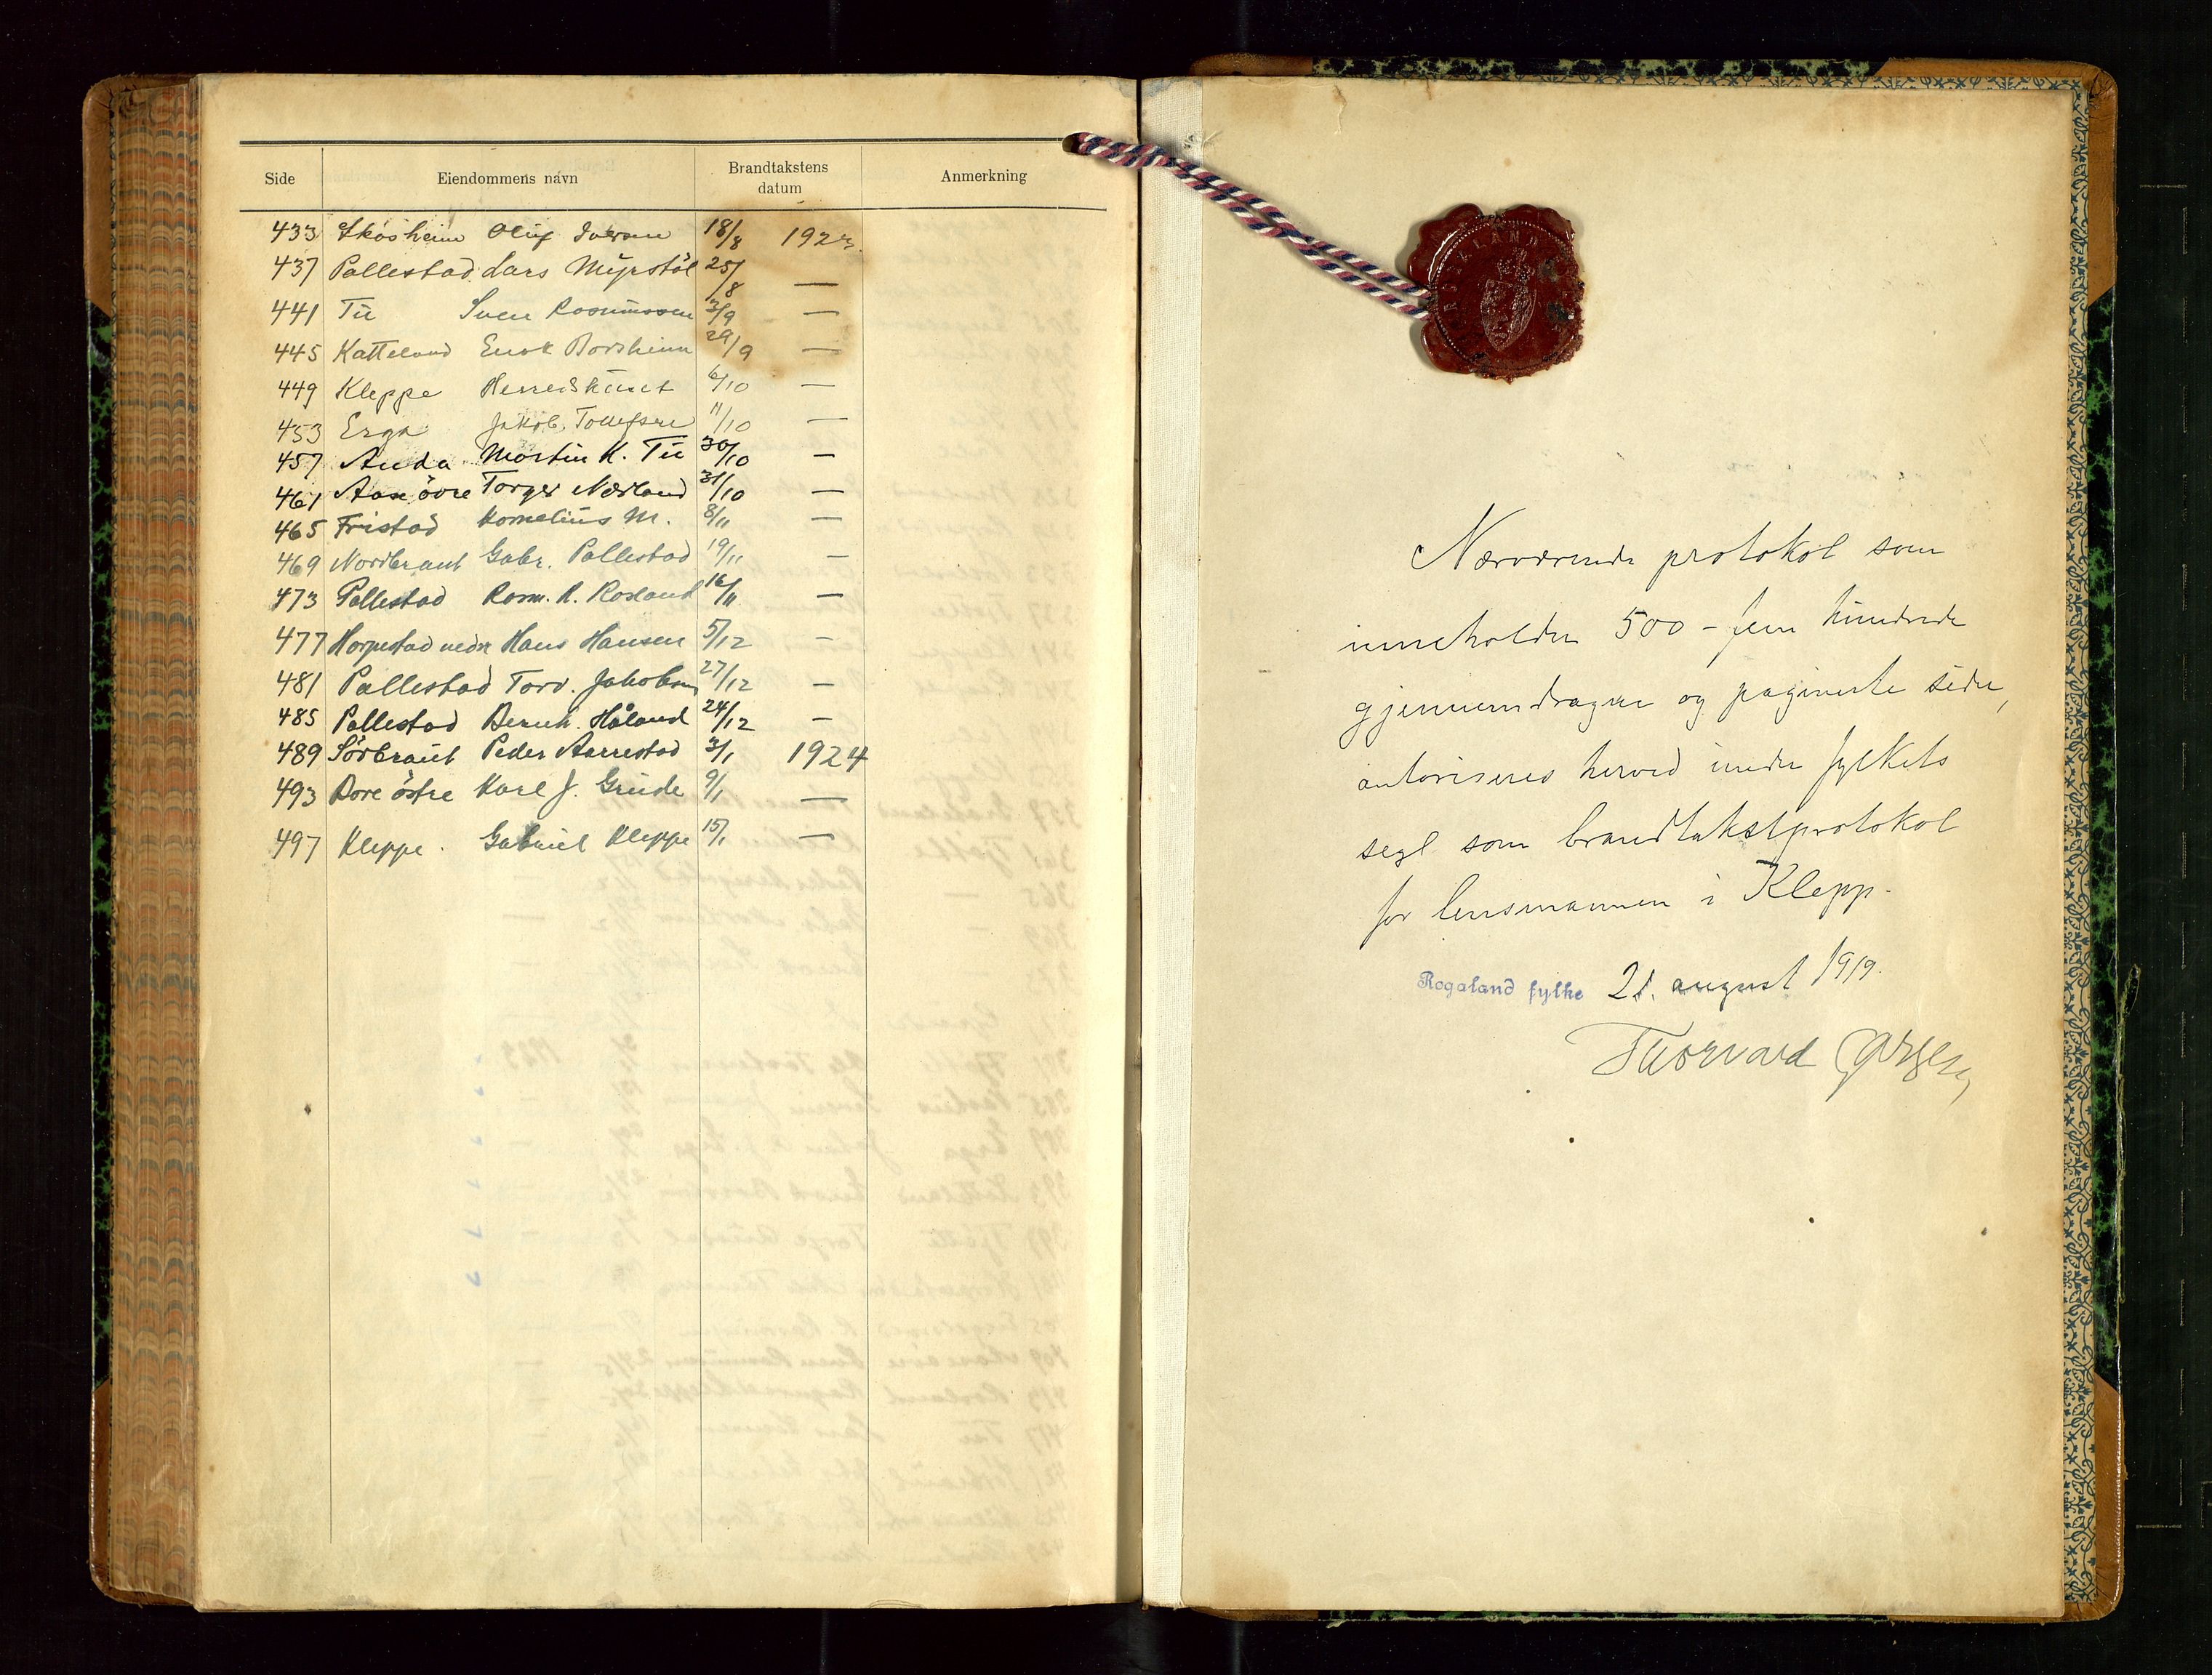 Side Eiendommens navn Brandtakstens datum Anmerkning
433 Skosheim Oluf 18/8 1923
437 Pallestad Lars Myrstøl 25/8 —
441 Tu Sven Rasmussen 3/9 —
445 Katteland Enok Borsheim 29/9 —
449 Kleppe Herredshuset 6/10 —
453 Erga Jakob Tollefsen 11/10 —
457 Anda Martin K. Tu 30/10 —
461 Aase övre Torger Nærland 31/10 —
465 Fristad Kornelius M. 8/11 —
469 Nordbraut Gabr. Pallestad 19/11 —
473 Pallestad Rasm. R. Rosland 16/11 —
477 Horpestad nedre Hans Hansen 5/12 —
481 Pallestad Torv. Jakobsen 27/12 —
485 Pallestad Bernh. Håland 24/12 —
489 Sörbraut Peder Aarrestad 3/1 1924
493 Bore östre Karl J. Grude 9/1 —
497 Kleppe Gabriel Kleppe 15/1 —
Nærværende protokol som
inneholder 500 – fem hundrede
gjennemdragne og paginerte sider,
autoriseres herved under fylkets
segl som brandtakstprotokol
for lensmannen i Klepp.
Rogaland fylke 21. august 1919.
Thorvard